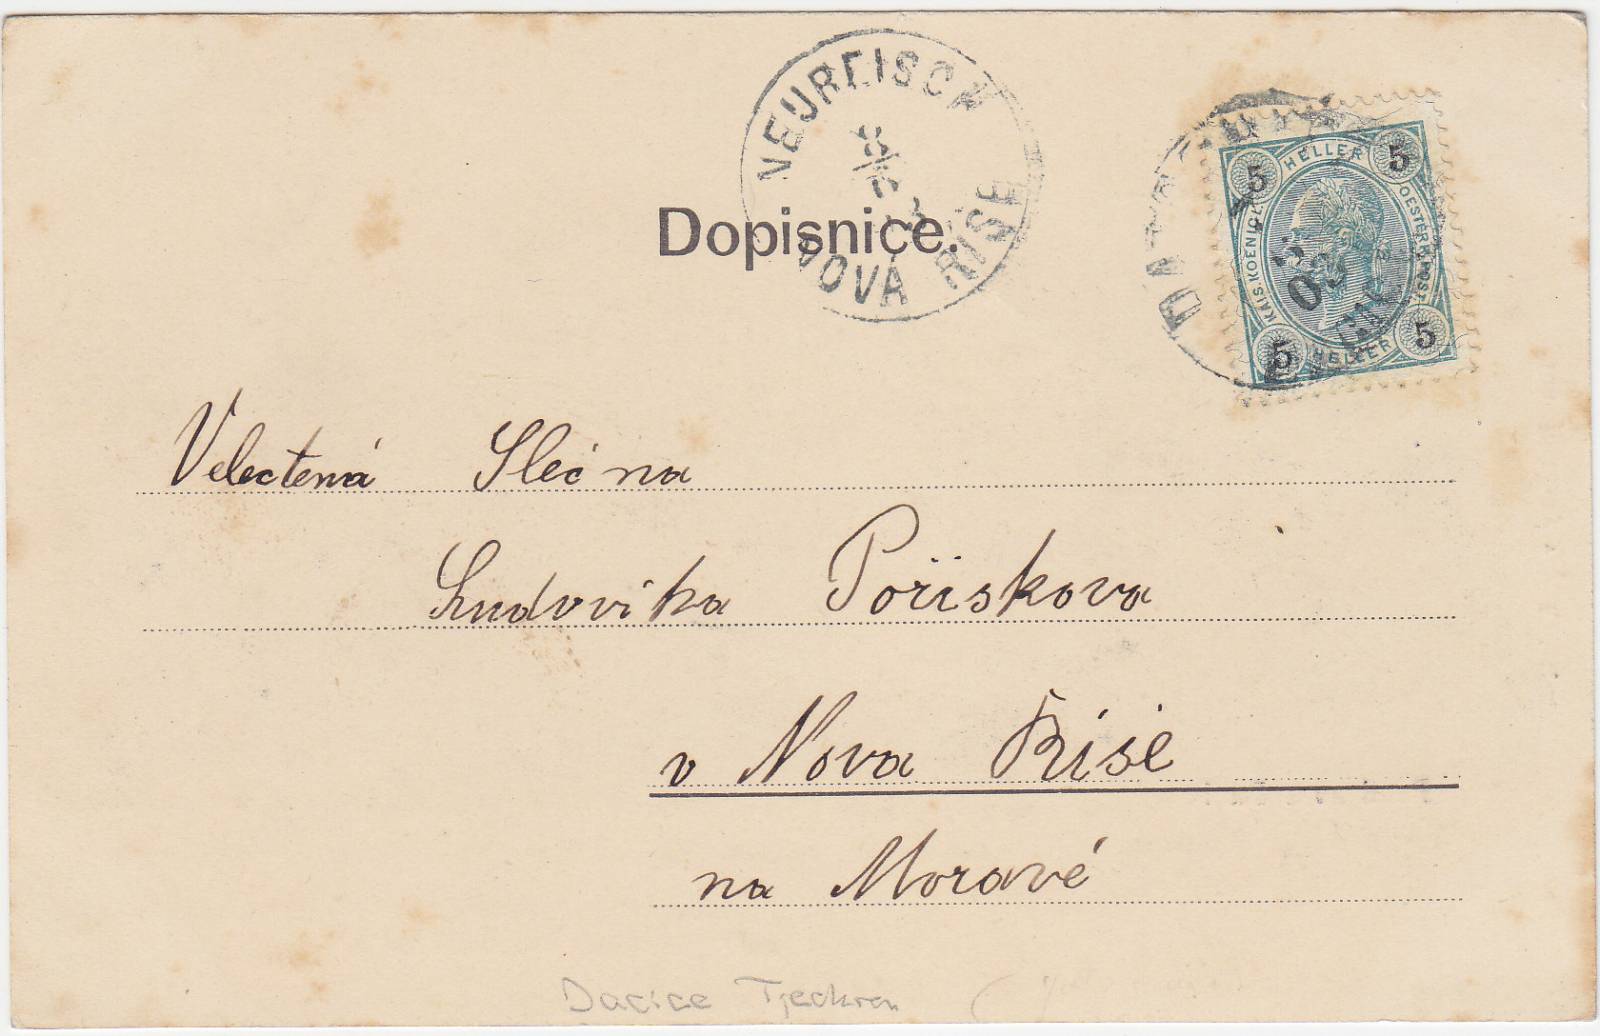 NEUREISCH
NOVÁ ŘÍŠE
Dopisnice.
5 HELLER 5
KAIS. KOENIGL. OESTERR. POST.
03
5 HELLER 5
Velectená Slečna
Ludovika Pořiskova
v Nova Řiše
na Moravé
Dacice Tjeckien